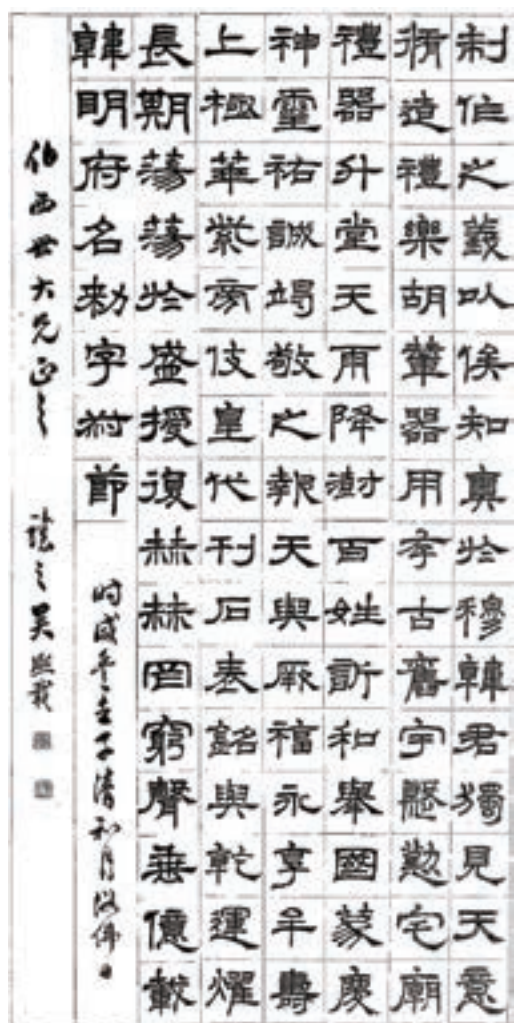 制作之義以俟知奧於穆韓君獨見天意
脩造禮樂胡輦器用存古舊宇慇懃宅廟
禮器升堂天雨降澍百姓訢和舉國蒙慶
神靈祐誠竭敬之報天與厥福永享牟壽
上極華紫旁伎皇代刊石表銘與乾運燿
長期蕩蕩於盛授復赫赫罔窮聲垂億載
韓明府名勑字叔節
時咸豐壬子清和月浴佛日
伯西世大兄正之 讓之吳熙載